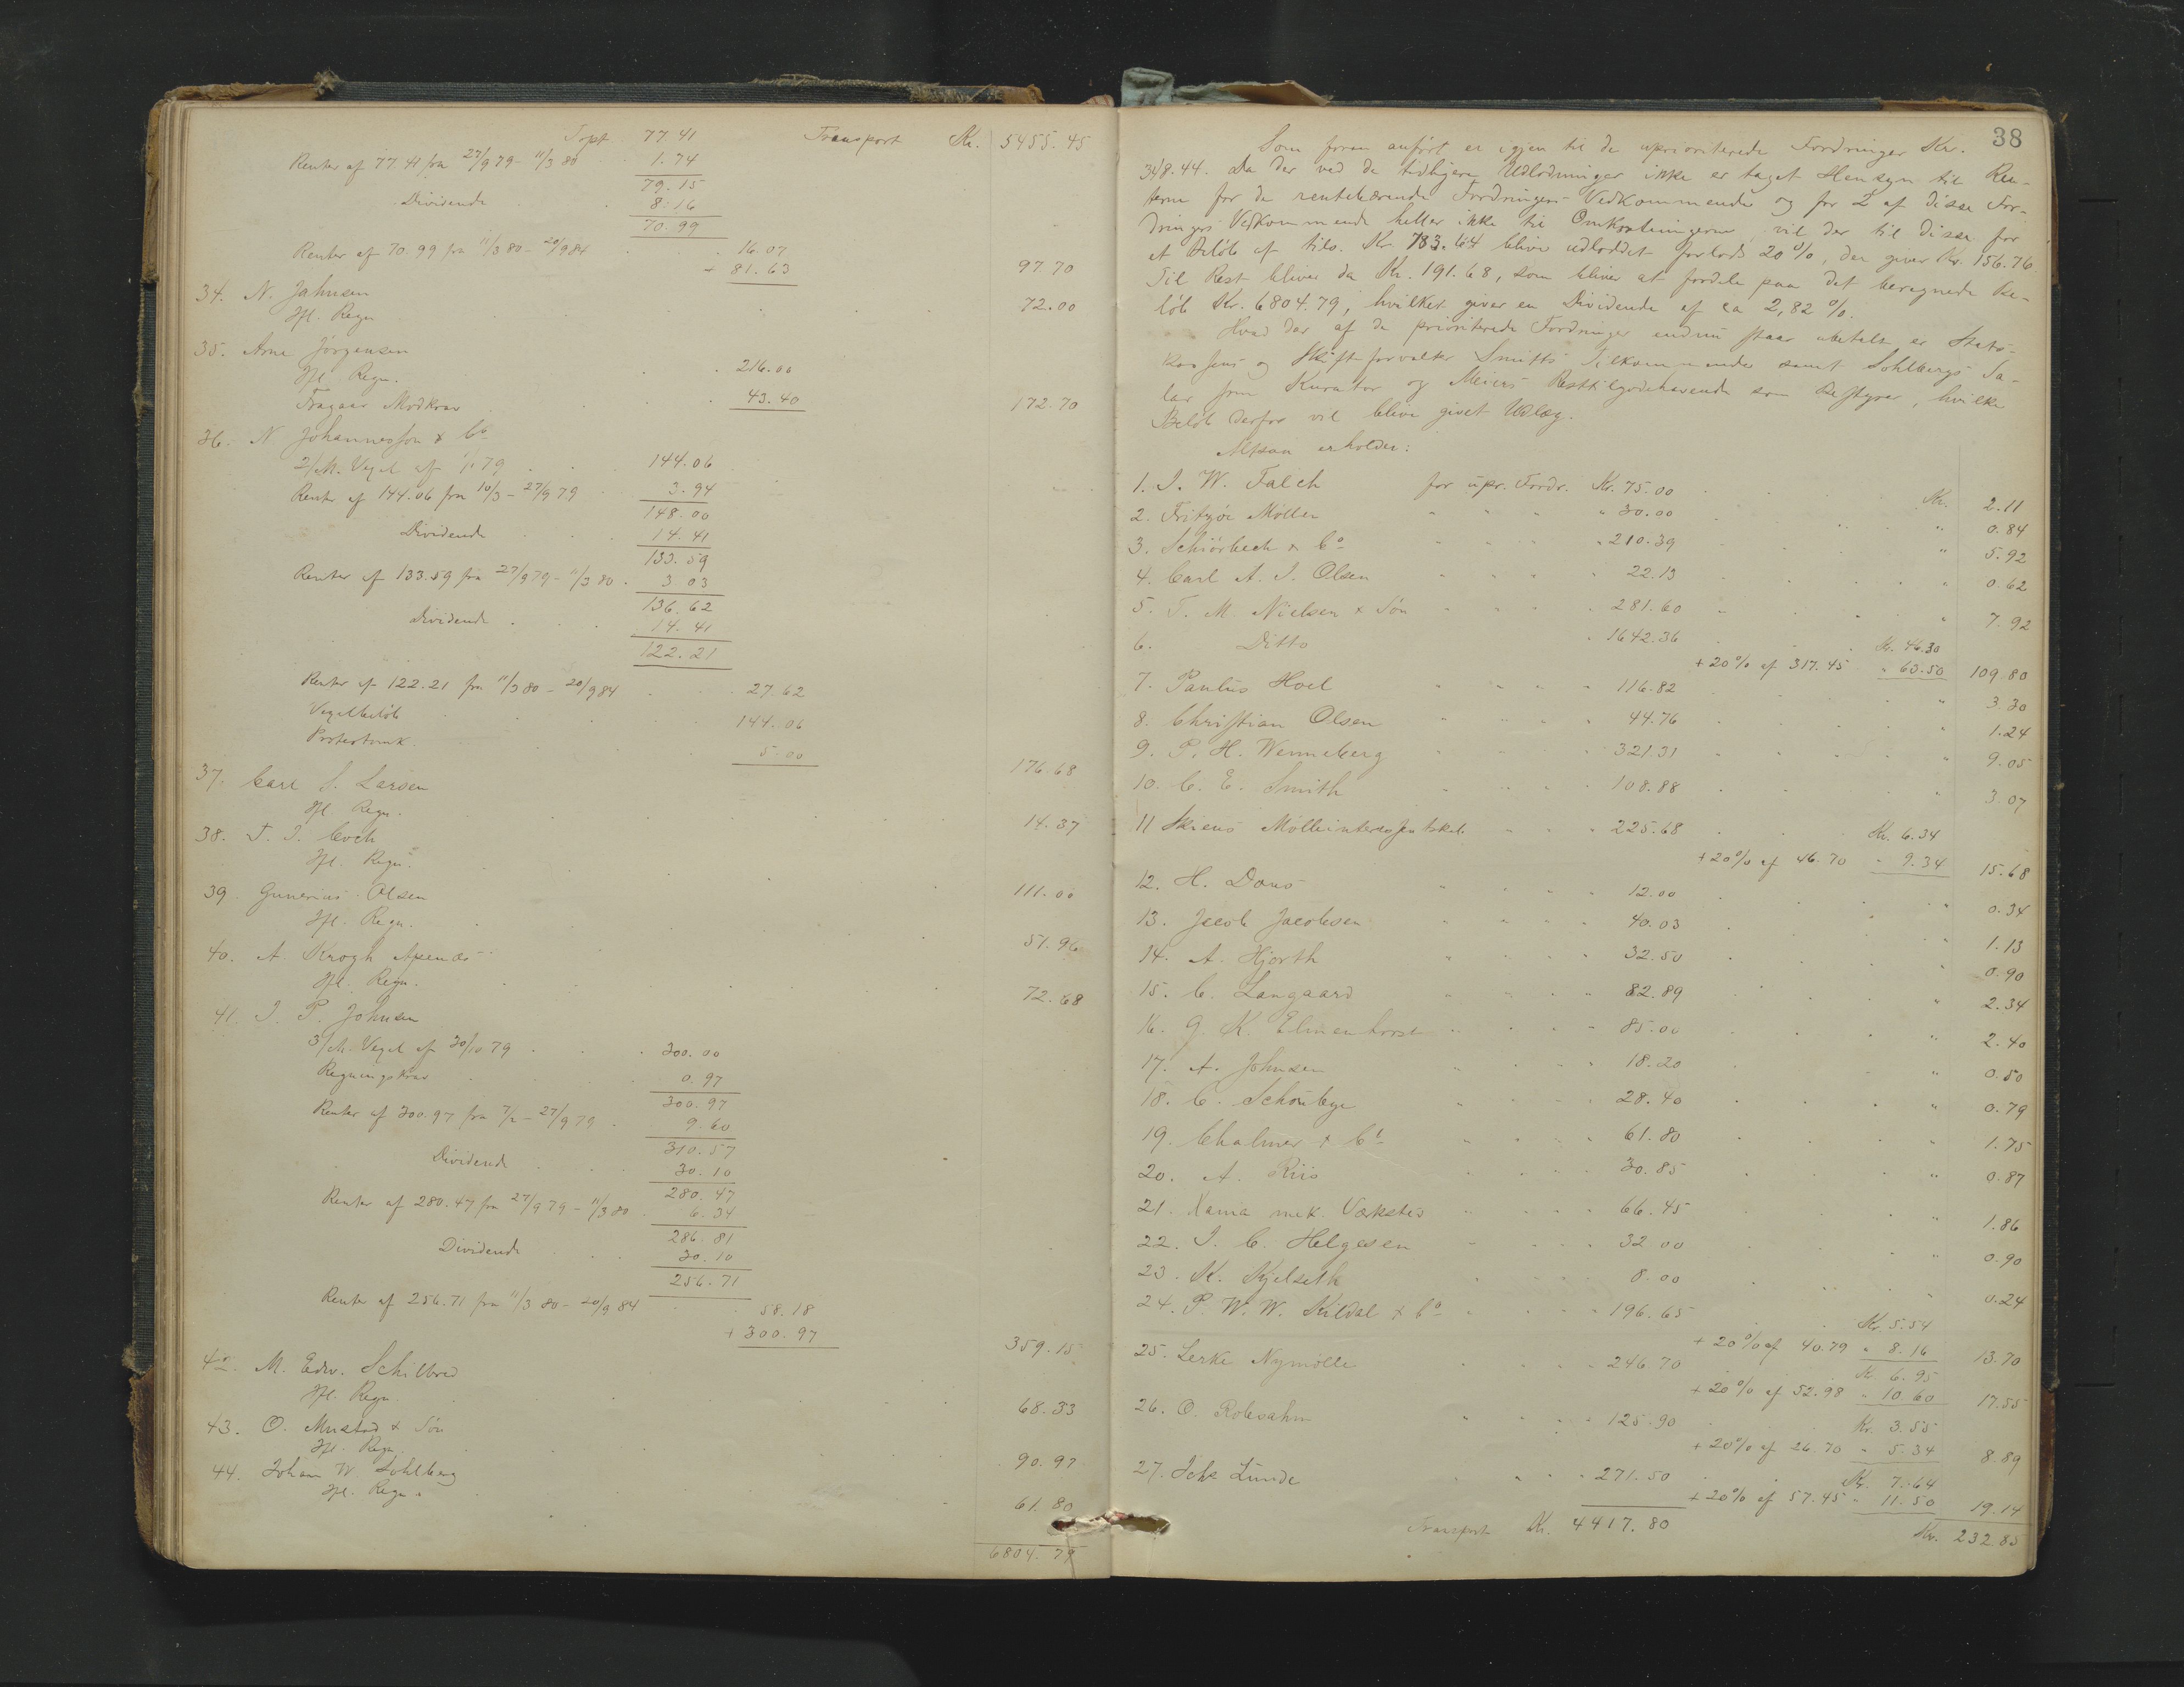 Tspt. 77.41 Transport Kr. 5455.45
Renter af 77.41 fra 27/9 79 - 11/3 80 1.74
79.15
Dividende 8.16
70.99
Renter af 70.99 fra 11/3 80 - 20/9 84 16.07
+ 81.63 97.70
34. N. Jahnsen
Ifl. Regn. 72.00
35. Arne Jörgensen
Ifl. Regn. 216.00
Fragaar Modkrav 43.40 172.70
36. N. Johannesson & Co
2/M. Vexel af 1/1 79 144.06
Renter af 144.06 fra 10/3 - 27/9 79 3.94
148.00
Dividende 14.41
133.59
Renter af 133.59 fra 27/9 79 - 11/3 80 3.03
136.62
Dividende 14.41
122.21
Renter af 122.21 fra 11/3 80 - 20/9 84 27.62
Vexelbeløb 144.06
Protestomk. 5.00 176.68
37. Carl S. Larsen
Ifl. Regn. 14.37
38. T. I. Coch
Ifl. Regn. 111.00
39. Gunerius Olsen
Ifl. Regn. 51.96
40. A. Krogh Apenæs
Ifl. Regn. 72.68
41. I. P. Johnsen
3/M. Vexel af 30/10 79 300.00
Regningskrav 0.97
300.97
Renter af 300.97 fra 7/2 - 27/9 79 9.60
310.57
Dividende 30.10
280.47
Renter af 280.47 fra 27/9 79 - 11/3 80 6.34
286.81
Dividende 30.10
256.71
Renter af 256.71 fra 11/3 80 - 20/9 84 58.18
+ 300.97 359.15
42. M. Edw. Schilbred
Ifl. Regn. 68.33
43. O. Mustad & Søn
Ifl. Regn. 90.97
44. Johan W. Sohlberg
Ifl. Regn. 61.80
6804.79
38
Som foran anført er igjen til de uprioriterede Fordringer Kr.
348.44. Da der ved de tidligere Udlodninger ikke er taget Hensyn til Ren-
terne for de rentebærende Fordringers Vedkommende og for 2 af disse For-
dringers Vedkommende heller ikke til Omkostningerne, vil der til disse for
et Beløb af tils. Kr. 783.64 blive udloddet forlods 20%, der giver Kr. 156.76
Til Rest bliver da Kr. 191.68, som bliver at fordele paa det beregnede Be-
løb Kr. 6804.79, hvilket giver en Dividende af ca 2,82 %.
Hvad der af de prioriterede Fordringer endnu staar ubetalt er Stats-
kassens og Skifteforvalter Smitts Tilkommende samt Sohlbergs Sa-
lær som Kurator og Meiers Resttilgodehavende som Bestyrer, hvilke
Beløb derfor vil blive givet Udlæg.
Altsaa erholder:
1. I. W. Falch for upr. Fordr. Kr. 75.00 Kr. 2.11
2. Fritzöe Møller " " " " 30.00 " 0.84
3. Schiörbech & Co " " " " 210.39 " 5.92
4. Carl A. I. Olsen " " " " 22.13 " 0.62
5. T. M. Nielsen & Søn " " " " 281.60 " 7.92
6. Ditto " 1642.36 Kr. 46.30
+ 20% af 317.45 " 63.50 109.80
7. Paulus Hoel " " " " 116.82 " 3.30
8. Christian Olsen " " " " 44.76 " 1.24
9. P. H. Wenneberg " " " " 321.31 " 9.05
10. C. E. Smith " " " " 108.88 " 3.07
11 Skiens Mølleinteressentskab " " " 225.68 Kr. 6.34
+ 20% af 46.70 " 9.34 15.68
12. H. Dons " " " " 12.00 " 0.34
13. Jacob Jacobsen " " " " 40.03 " 1.13
14. A. Hjorth " " " " 32.50 " 0.90
15. C. Langaard " " " " 82.89 " 2.34
16. G. K. Elmenhorst " " " " 85.00 " 2.40
17. A. Johnsen " " " " 18.20 " 0.50
18. C. Schoubye " " " " 28.40 " 0.79
19. Chalmer & Co " " " " 61.80 " 1.75
20. A. Riis " " " " 30.85 " 0.87
21. Kama mek. Værksted " " " " 66.45 " 1.86
22. I. C. Helgesen " " " " 32.00 " 0.90
23. K. Kjelseth " " " " 8.00 " 0.24
24. P. W. W. Kildal & Co " " " " 196.65 Kr. 5.54
+ 20% af 40.79 " 8.16 13.70
25. Lerke Nymølle " " " " 246.70 Kr. 6.95
+ 20% af 52.98 " 10.60 17.55
26. O. Robsahm " " " " 125.90 Kr. 3.55
+ 20% af 26.70 " 5.34 8.89
27. Jchs Lunde " " " " 271.50 Kr. 7.64
+ 20% af 57.45 " 11.50 19.14
Transport Kr. 4417.80 Kr. 232.85